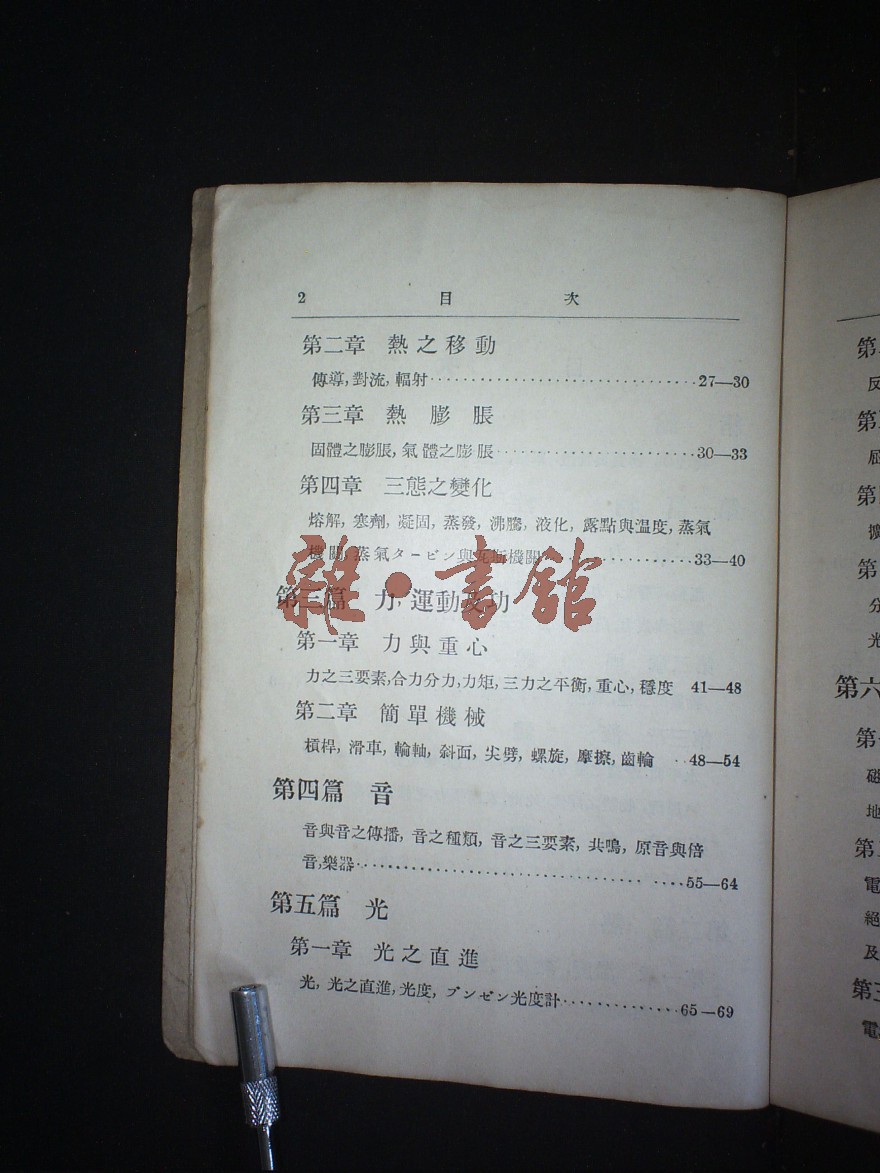 2 目 次
第二章 熱之移動
傳導, 對流, 輻射································27—30
第三章 熱膨脹
固體之膨脹, 氣體之膨脹························30—33
第四章 三態之變化
熔解, 寒劑, 凝固, 蒸發, 沸騰, 液化, 露點與溫度, 蒸氣
機關, 蒸氣タービン與瓦斯機關··················33—40
雜·書舘
第三篇 力, 運動及功
第一章 力與重心
力之三要素, 合力分力, 力矩, 三力之平衡, 重心, 穩度 41—48
第二章 簡單機械
槓桿, 滑車, 輪軸, 斜面, 尖劈, 螺旋, 摩擦, 齒輪 ··48—54
第四篇 音
音與音之傳播, 音之種類, 音之三要素, 共鳴, 原音與倍
音, 樂器·································· ····55—64
第五篇 光
第一章 光之直進
光, 光之直進, 光度, ブンゼン光度計··············65—69
第
反
第
屈
第
擴
第
分
光
第六
第
磁
地
第
電
絕
及
第三
電